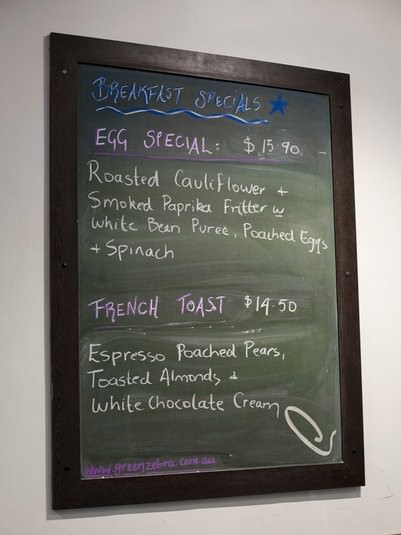 BREAKFAST SPECIALS
EGG SPECIAL: $15.90
Roasted Cauliflower +
Smoked Paprika Fritter w
White Bean Puree, Poached Eggs
+ Spinach
FRENCH TOAST $14.50
Espresso Poached Pears,
Toasted Almonds +
White Chocolate Cream
www.greenzebra.com.au